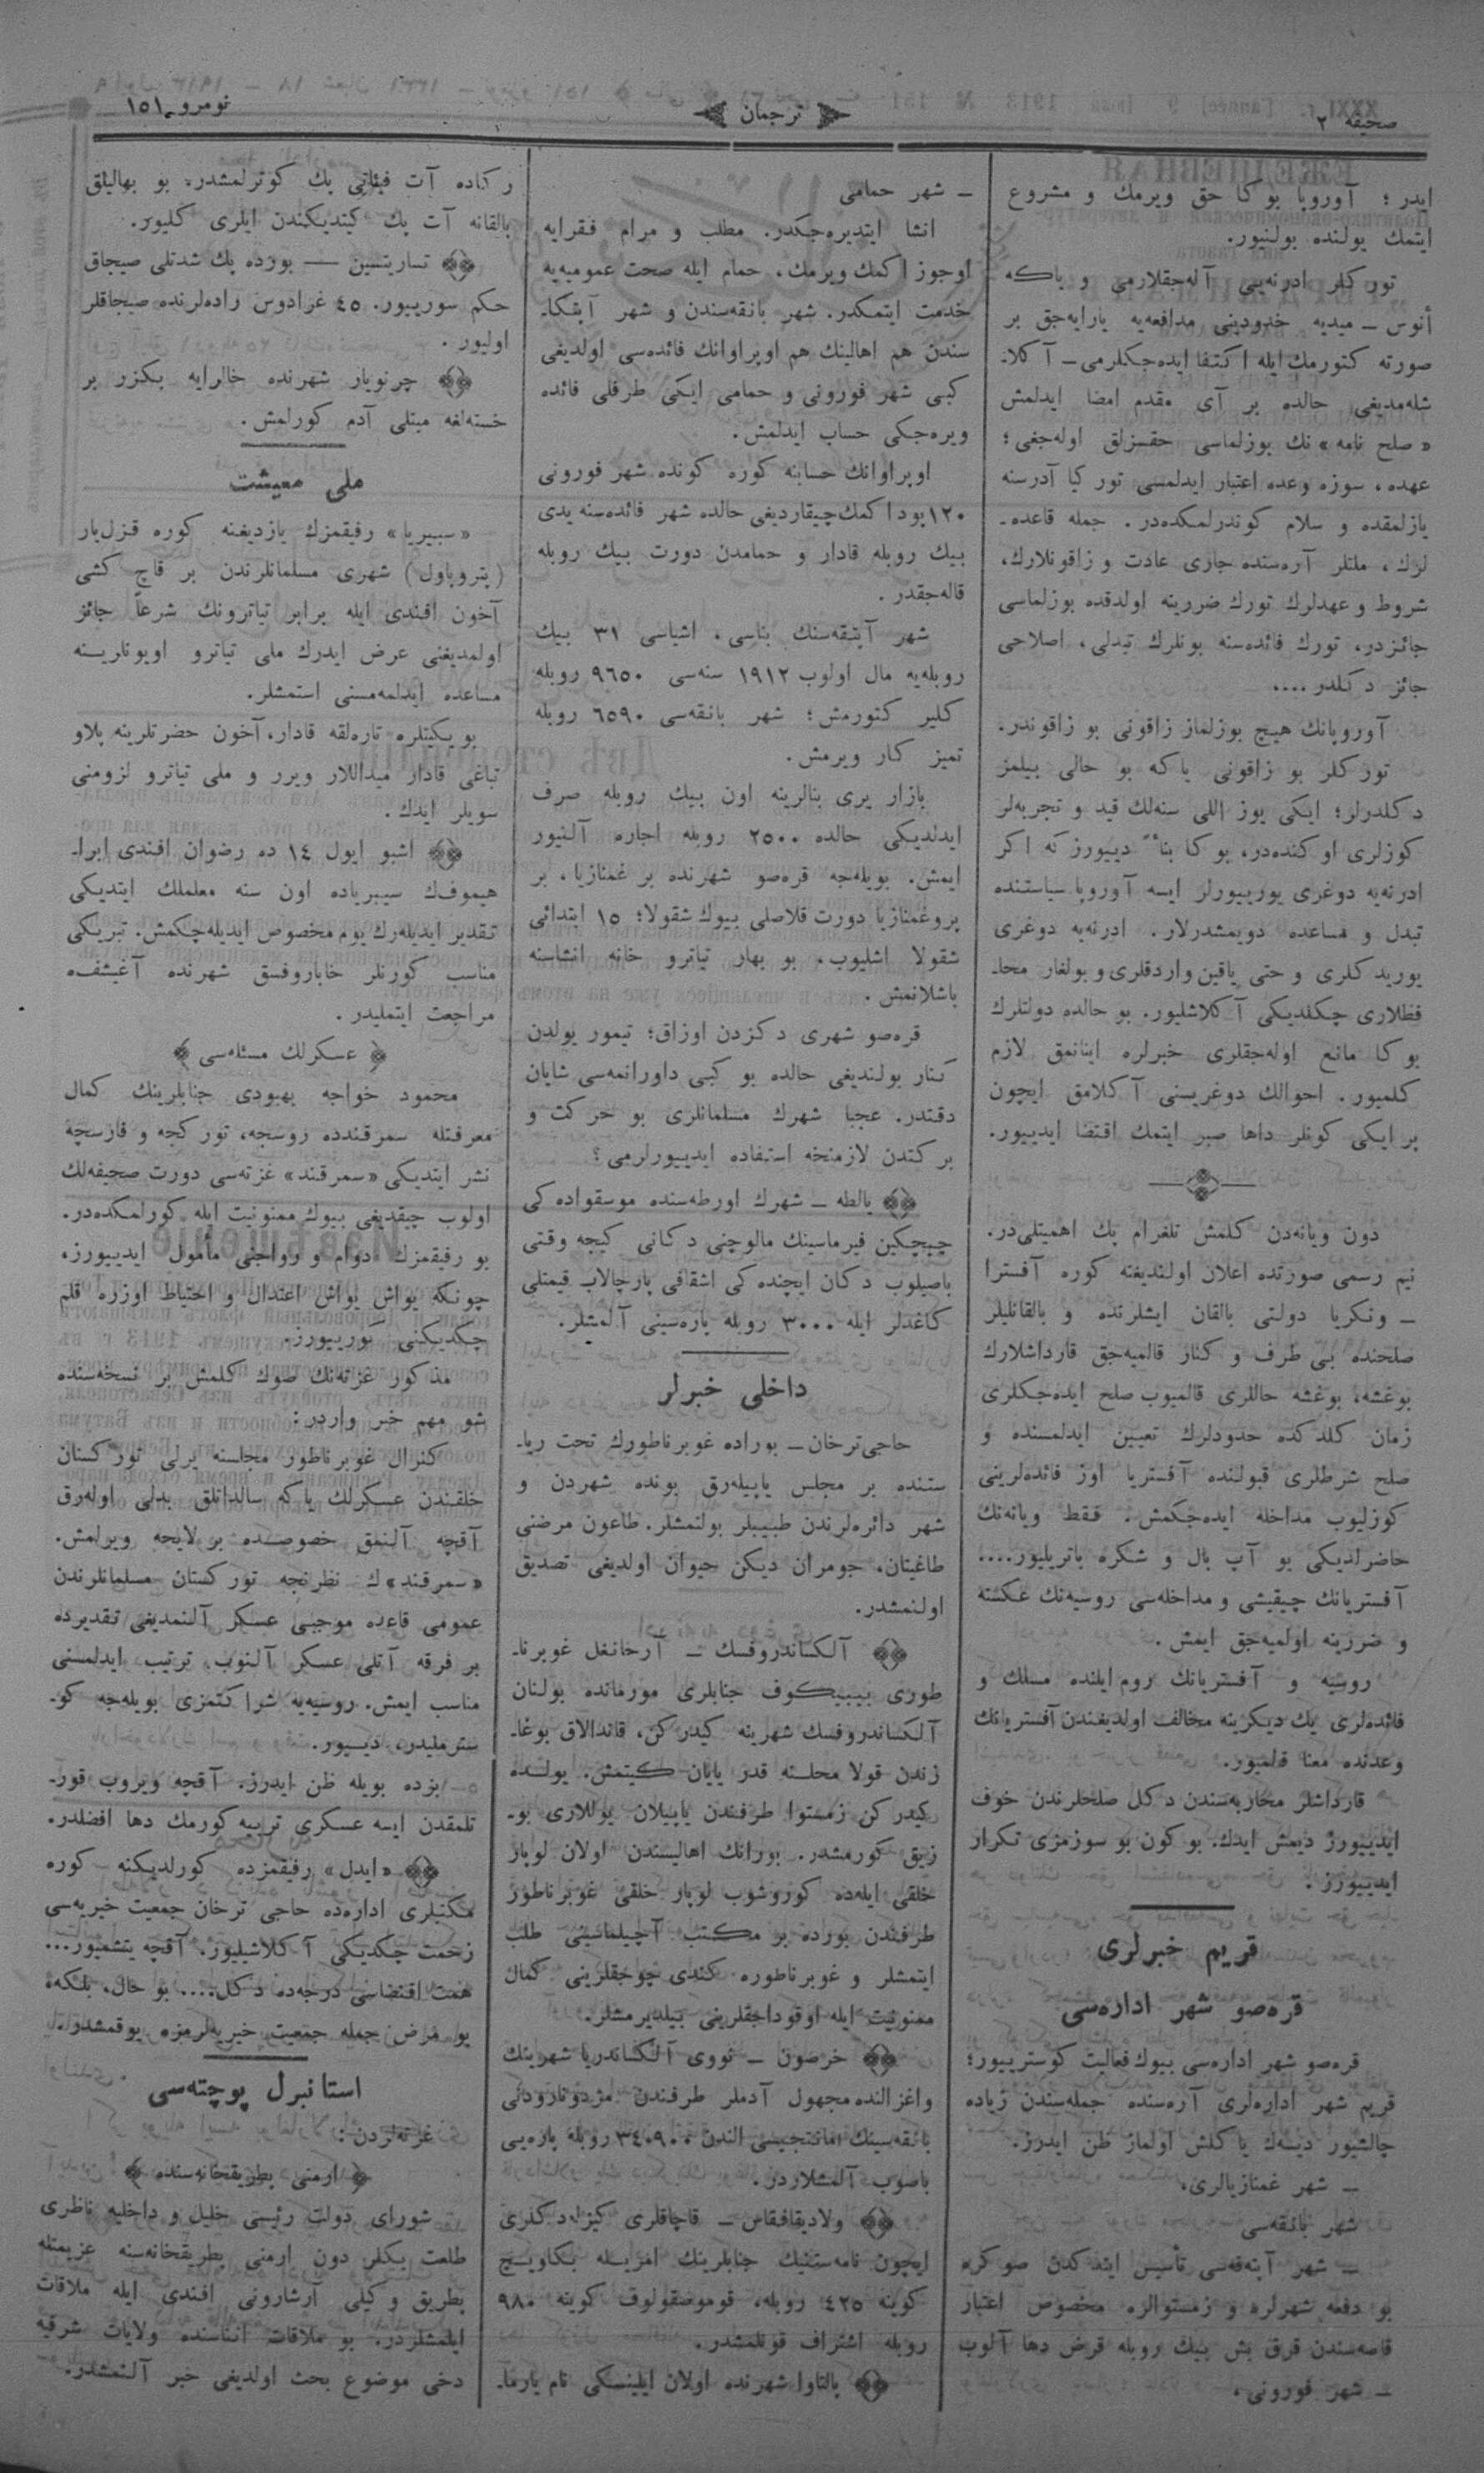 صحیفه ٢
ترجمان
نومرو ١٥١
ایدر؛ آوروپا بوكا حق ویرمك و مشروع
ایتمك یولنده بولنیور.
توركلر ادرنه‌یی آله‌جقلارمی و یاكه
أنوس ـ میدیه حدودینی مدافعه‌یه یارایه‌جق بر
صورته كتورمك ایله اكتفا ایده‌جكلرمی ـ آكلا‌ـ
شله‌مدیغی حالده بر آی مقدم امضا ایدلمش
«صلح نامه» نك بوزلماسی حقسزلق اوله‌جغی؛
عهده، سوزه وعده اعتبار ایدلمسی توركیا آدرسنه
یازلمقده و سلام كوندرلمكده‌در. جمله قاعده‌ـ
لرك، ملتلر آره‌سنده جاری عادت و زاقونلارك،
شروط و عهدلرك تورك ضررینه اولدقده بوزلماسی
جائزدر، تورك فائده‌سنه بونلرك تبدلی، اصلاحی
جائز دكلدر....
آوروپانك هیچ بوزلماز زاقونی بو زاقوندر.
توركلر بو زاقونی یاكه بو حالی بیلمز
دكلدرلر؛ ایكی یوز اللی سنه‌لك قید و تجربه‌لر
كوزلری اوكنده‌در، بوكا بناً دییورز كه اكر
ادرنه‌یه دوغری یوریییورلر ایسه آوروپا سیاستنده
تبدل و مساعده دویمشدرلار. ادرنه‌یه دوغری
یوریدكلری و حتی یاقین واردقلری و بولغار محا‌ـ
فظلاری چكلدیكی آكلاشلیور. بو حالده دولتلرك
بوكا مانع اوله‌جقلری خبرلره اینانمق لازم
كلمیور. احوالك دوغریسنی آكلامق ایچون
بر ایكی كونلر داها صبر ایتمك اقتضا ایدییور.
دون ویانه‌دن كلمش تلغرام پك اهمیتلی‌در.
نیم رسمی صورتده اعلان اولندیغنه كوره آفستریا
ـ ونكریا دولتی بالقان ایشلرنده و بالقانلیلر
صلحنده بی طرف و كنار قالمیه‌جق قارداشلارك
بوغشه، بوغشه حاللری قالمیوب صلح ایده‌جكلری
زمان كلدكده حدودلرك تعیین ایدلمسنده و
صلح شرطلری قبولنده آفستریا اوز فائده‌لرینی
كوزلیوب مداخله ایده‌جكمش. فقط ویانه‌نك
حاضرلدیكی بو آپ بال و شكره باتریلیور....
آفستریانك چیقیشی و مداخله‌سی روسیه‌نك عكسنه
و ضررینه اولمیه‌جق ایمش.
روسیه و آفستریانك روم ایلنده مسلك و
فائده‌لری یك دیكرینه مخالف اولدیغندن آفستریانك
وعدنده معنا قلمیور.
قارداشلر محاربه‌سندن دكل صلحلرندن خوف
ایدییورز دیمش ایدك. بو كون بو سوزمزی تكرار
ایدییورز.
قریم خبرلری
قره‌صو شهر اداره‌سی
قره‌صو شهر اداره‌سی بیوك فعالیت كوسترییور؛
قریم شهر اداره‌لری آره‌سنده جمله‌سندن زیاده
چالشیور دیسه‌ك یاكلش اولماز ظن ایدرز.
ـ شهر غمنازیالری،
شهر بانقه‌سی
ـ شهر آپته‌قه‌سی تأسیس ایتدكدن صوكره
بو دفعه شهرلره و زمستوالره مخصوص اعتبار
قاصه‌سندن قرق بش بیك روبله قرض دها آلوب
ـ شهر فورونی،
ـ شهر حمامی
انشا ایتدیره‌جكدر. مطلب و مرام فقرایه
اوجوز اكمك ویرمك، حمام ایله صحت عمومیه‌یه
خدمت ایتمكدر. شهر بانقه‌سندن و شهر آپتكا‌ـ
سندن هم اهالینك هم اوپراوانك فائده‌سی اولدیغی
كبی شهر فورونی و حمامی ایكی طرفلی فائده
ویره‌جكی حساب ایدلمش.
اوپراوانك حسابنه كوره كونده شهر فورونی
١٢٠ پود اكمك چیقاردیغی حالده شهر فائده‌سنه یدی
بیك روبله قادار و حمامدن دورت بیك روبله
قاله‌جقدر.
شهر آپتیقه‌سنك بناسی، اشیاسی ٣١ بیك
روبله‌یه مال اولوب ١٩١٢ سنه‌سی ٩٦٥٠ روبله
كلیر كتورمش؛ شهر بانقه‌سی ٦٥٩٠ روبله
تمیز كار ویرمش.
بازار یری بنالرینه اون بیك روبله صرف
ایدلدیكی حالده ٢٥٠٠ روبله اجاره آلنیور
ایمش. بویله‌جه قره‌صو شهرنده بر غمنازیا، بر
پروغمنازیا دورت قلاصلی بیوك شقولا؛ ١٥ ابتدائی
شقولا اشلیوب، بو بهار تیاترو خانه انشاسنه
باشلانمش.
قره‌صو شهری دكزدن اوزاق؛ تیمور یولدن
كنار بولندیغی حالده بو كبی داورانمه‌سی شایان
دقتدر. عجبا شهرك مسلمانلری بو حركت و
بركتدن لازمنجه استفاده ایدییورلرمی؟
یالطه ـ شهرك اورطه‌سنده موسقواده‌كی
چیچكین فیرماسینك مالوچنی دكانی كیجه وقتی
باصیلوب دكان ایچنده‌كی اشقافی پارچالاب قیمتلی
كاغدلر ایله ٣٠٠٠ روبله پاره‌سینی آلمشلر.
داخلی خبرلر
حاجی‌ترخان ـ بوراده غوبرناطورك تحت ریا‌ـ
ستنده بر مجلس یاپیله‌رق بونده شهردن و
شهر دائره‌لرندن طبیبلر بولنمشلر. طاعون مرضنی
طاغیتان، جومران دیكن حیوان اولدیغی تصدیق
اولنمشدر.
آلكساندروفسك ـ آرخانغل غوبرنا‌ـ
طوری بیبیكوف جنابلری مورمانده بولنان
آلكساندروفسك شهرینه كیدركن، قاندالاق بوغا‌ـ
زندن قولا محلنه قدر یایان كیتمش. یولده
كیدركن زمستوا طرفندن یاپیلان یوللاری بو‌ـ
زیق كورمشدر. بورانك اهالیسندن اولان لوپار
خلقی ایله‌ده كوروشوب لوپار خلقی غوبرناطور
طرفندن بورده بر مكتب آچیلماسینی طلب
ایتمشلر و غوبرناطوره كندی چوجقلرینی كمال
ممنونیت ایله اوقوداجقلرینی بیلدیرمشلر.
خرصون ـ نووی آلكساندریا شهرینك
واغزالنده مجهول آدملر طرفندن مژدونارودنی
بانقه‌سینك امانتجیسی الندن ٣٤٠٩٠٠ روبله پاره‌یی
باصوب آلمشلاردر.
ولادیقافقاس ـ قاچاقلری كیزله‌دكلری
ایچون نامه‌ستنیك جنابلرینك امریله بكاویچ
كوینه ٤٢٥ روبله، قوموضقولوف كوینه ٩٨٠
روبله اشتراف قونلمشدر.
پالتاوا شهرنده اولان ایلینسكی نام یارما‌ـ
ركاده آت فیئاتی پك كوترلمشدر. بو بهالیلق
بالقانه آت پك كیتدیكندن ایلری كلیور.
تساریتسین — بورده پك شدتلی صیجاق
حكم سورییور. ٤٥ غرادوس راده‌لرنده صیجاقلر
اولیور.
چرنویار شهرنده خالرایه بكزر بر
خسته‌لغه مبتلی آدم كورلمش.
ملی معیشت
«سیبریا» رفیقمزك یازدیغنه كوره قزل‌یار
(پتروپاول) شهری مسلمانلرندن بر قاچ كشی
آخون افندی ایله برابر تیاترونك شرعاً جائز
اولمدیغنی عرض ایدرك ملی تیاترو اویونارینه
مساعده ایدلمه‌مسنی استمشلر.
بو یكیتلره تاره‌لقه قادار، آخون حضرتلرینه پلاو
تباغی قادار میداللار ویرر و ملی تیاترو لزومنی
سویلر ایدك.
اشبو ایول ١٤ ده رضوان افندی ابرا‌ـ
هیموفك سیبریاده اون سنه معلملك ایتدیكی
تقدیر ایدیله‌رك یوم مخصوص ایدیله‌چكمش. تبریكی
مناسب كورنلر خاباروفسق شهرنده آغیشفه
مراجعت ایتملیدر.
عسكرلك مسئله‌سی
محمود خواجه بهبودی جنابلرینك كمال
معرفتله سمرقندده روسجه، توركجه و فارسچه
نشر ایتدیكی «سمرقند» غزته‌سی دورت صحیفه‌لك
اولوب چیقدیغی بیوك ممنونیت ایله كورلمكده‌در.
بو رفیقمزك دوام و رواجنی مأمول ایدییورز،
چونكه یواش یواش اعتدال و احتیاط اوزره قلم
چكدیكنی كورییورز.
مذكور غزته‌نك صوك كلمش بر نسخه‌سنده
شو مهم خبر واردر:
كنرال غوبرناطور مجلسنه یرلی توركستان
خلقندن عسكرلك یاكه سالداتلق بدلی اوله‌رق
آقچه آلنمق خصوصنده بر لایحه ویرلمش.
«سمرقند»ك نظرنجه توركستان مسلمانلرندن
عمومی قاعده موجبی عسكر آلنمدیغی تقدیرده
بر فرقه آتلی عسكر آلنوب ترتیب ایدلمسنی
مناسب ایمش. روسیه‌یه شراكتمزی بویله‌جه كو‌ـ
سترملیدر، دییور.
بزده بویله ظن ایدرز. آقچه ویروب قور‌ـ
تلمقدن ایسه عسكری تربیه كورمك دها افضلدر.
«ایدل» رفیقمزده كورلدیكنه كوره
مكتبلری اداره‌ده حاجی ترخان جمعیت خیریه‌سی
زحمت چكدیكی آكلاشیلیور. آقچه یتشمیور...
همت اقتضاسی درجه‌ده دكل.... بو حال، بلكه،
بو مرض جمله جمعیت خیریه‌لرمزه یوقمشدر.
استانبول پوچته‌سی
غزته‌لردن:
ارمنی بطریقخانه‌سنده
شورای دولت رئیسی خلیل و داخلیه ناظری
طلعت بكلر دون ارمنی بطریقخانه‌سنه عزیمتله
بطریق وكیلی آرشارونی افندی ایله ملاقات
ایلمشلردر. بو ملاقات اثناسنده ولایات شرقیه
دخی موضوع بحث اولدیغی خبر آلنمشدر.